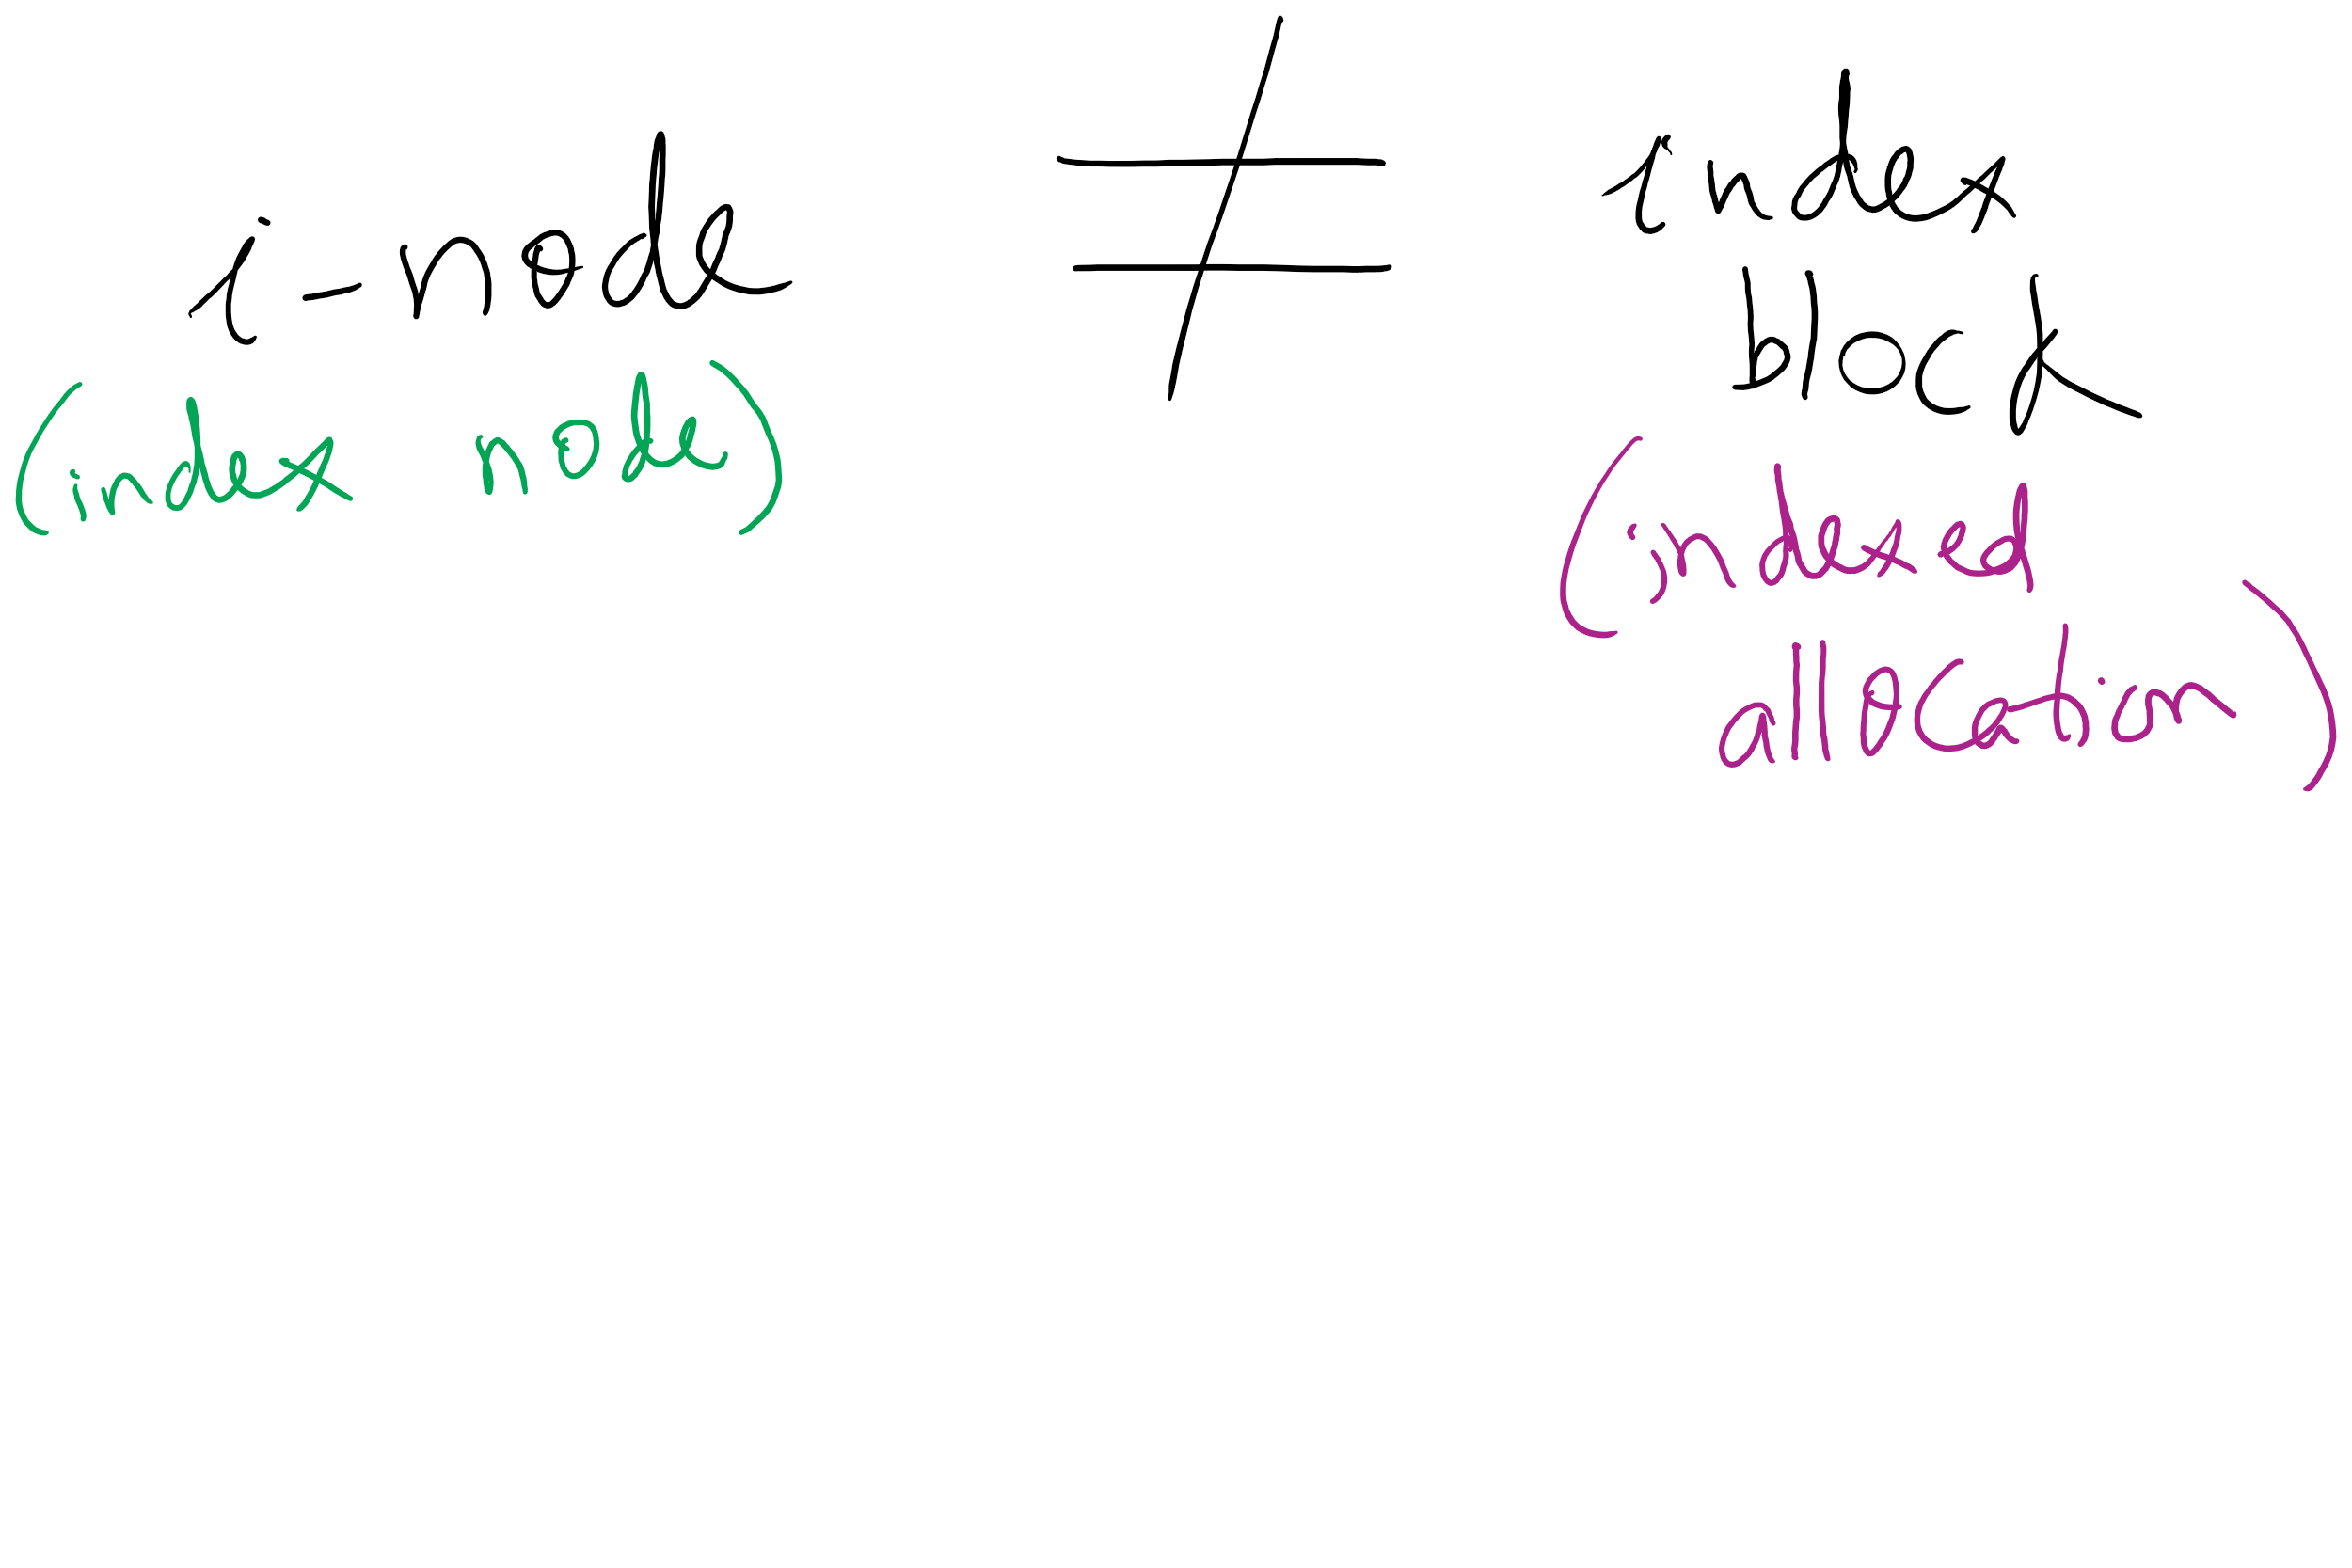 i-node ≠ index
block
(index node)
(indexed
allocation)